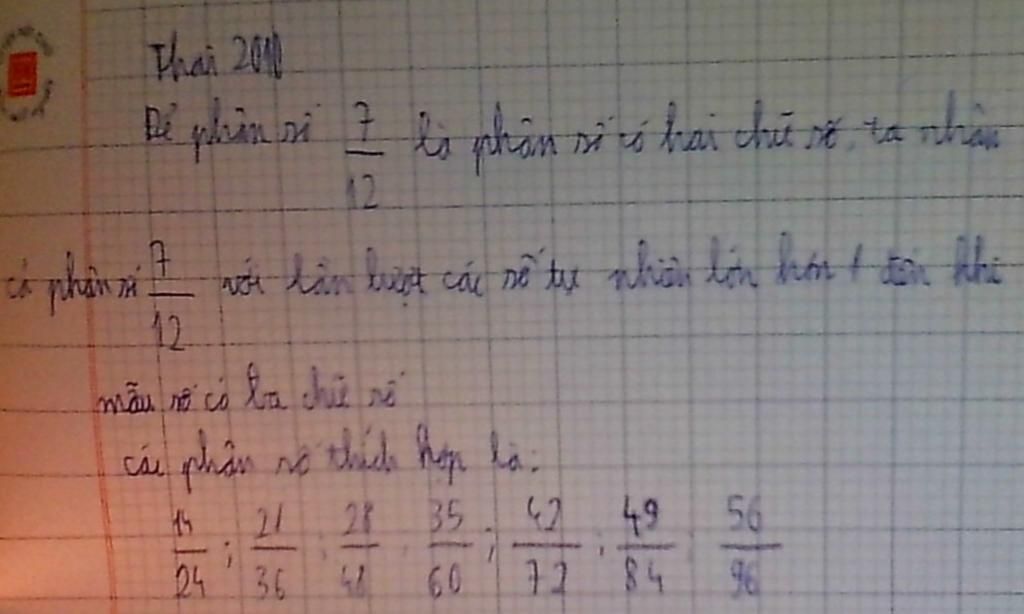 Thai 2010
Để phân số 7/12 là phân số có hai chữ số, ta nhân
cả phân số 7/12 với lần lượt các số tự nhiên lớn hơn 1 đến khi
mẫu số có ba chữ số
các phân số thích hợp là:
14/24 ; 21/36 ; 28/48 ; 35/60 ; 42/72 ; 49/84 ; 56/96